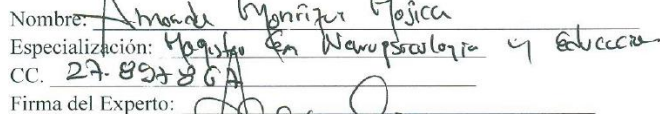 Nombre: Amanda Monrizur Mojica
Especialización: Magister en Neuropsicología y Educación
CC. 27.897867
Firma del Experto: